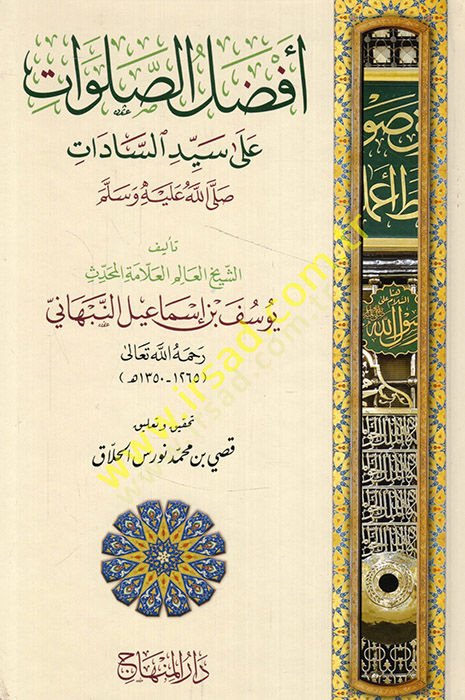 أفضل الصلوات
على سيد السادات
صلى الله عليه وسلم
تأليف
الشيخ العالم العلامة المحدث
يوسف بن إسماعيل النبهاني
رحمه الله تعالى
(١٢٦٥-١٣٥٠هـ)
تحقيق وتعليق
قصي بن محمد نورس الحلاق
دار المنهاج
www.irsad.com.tr